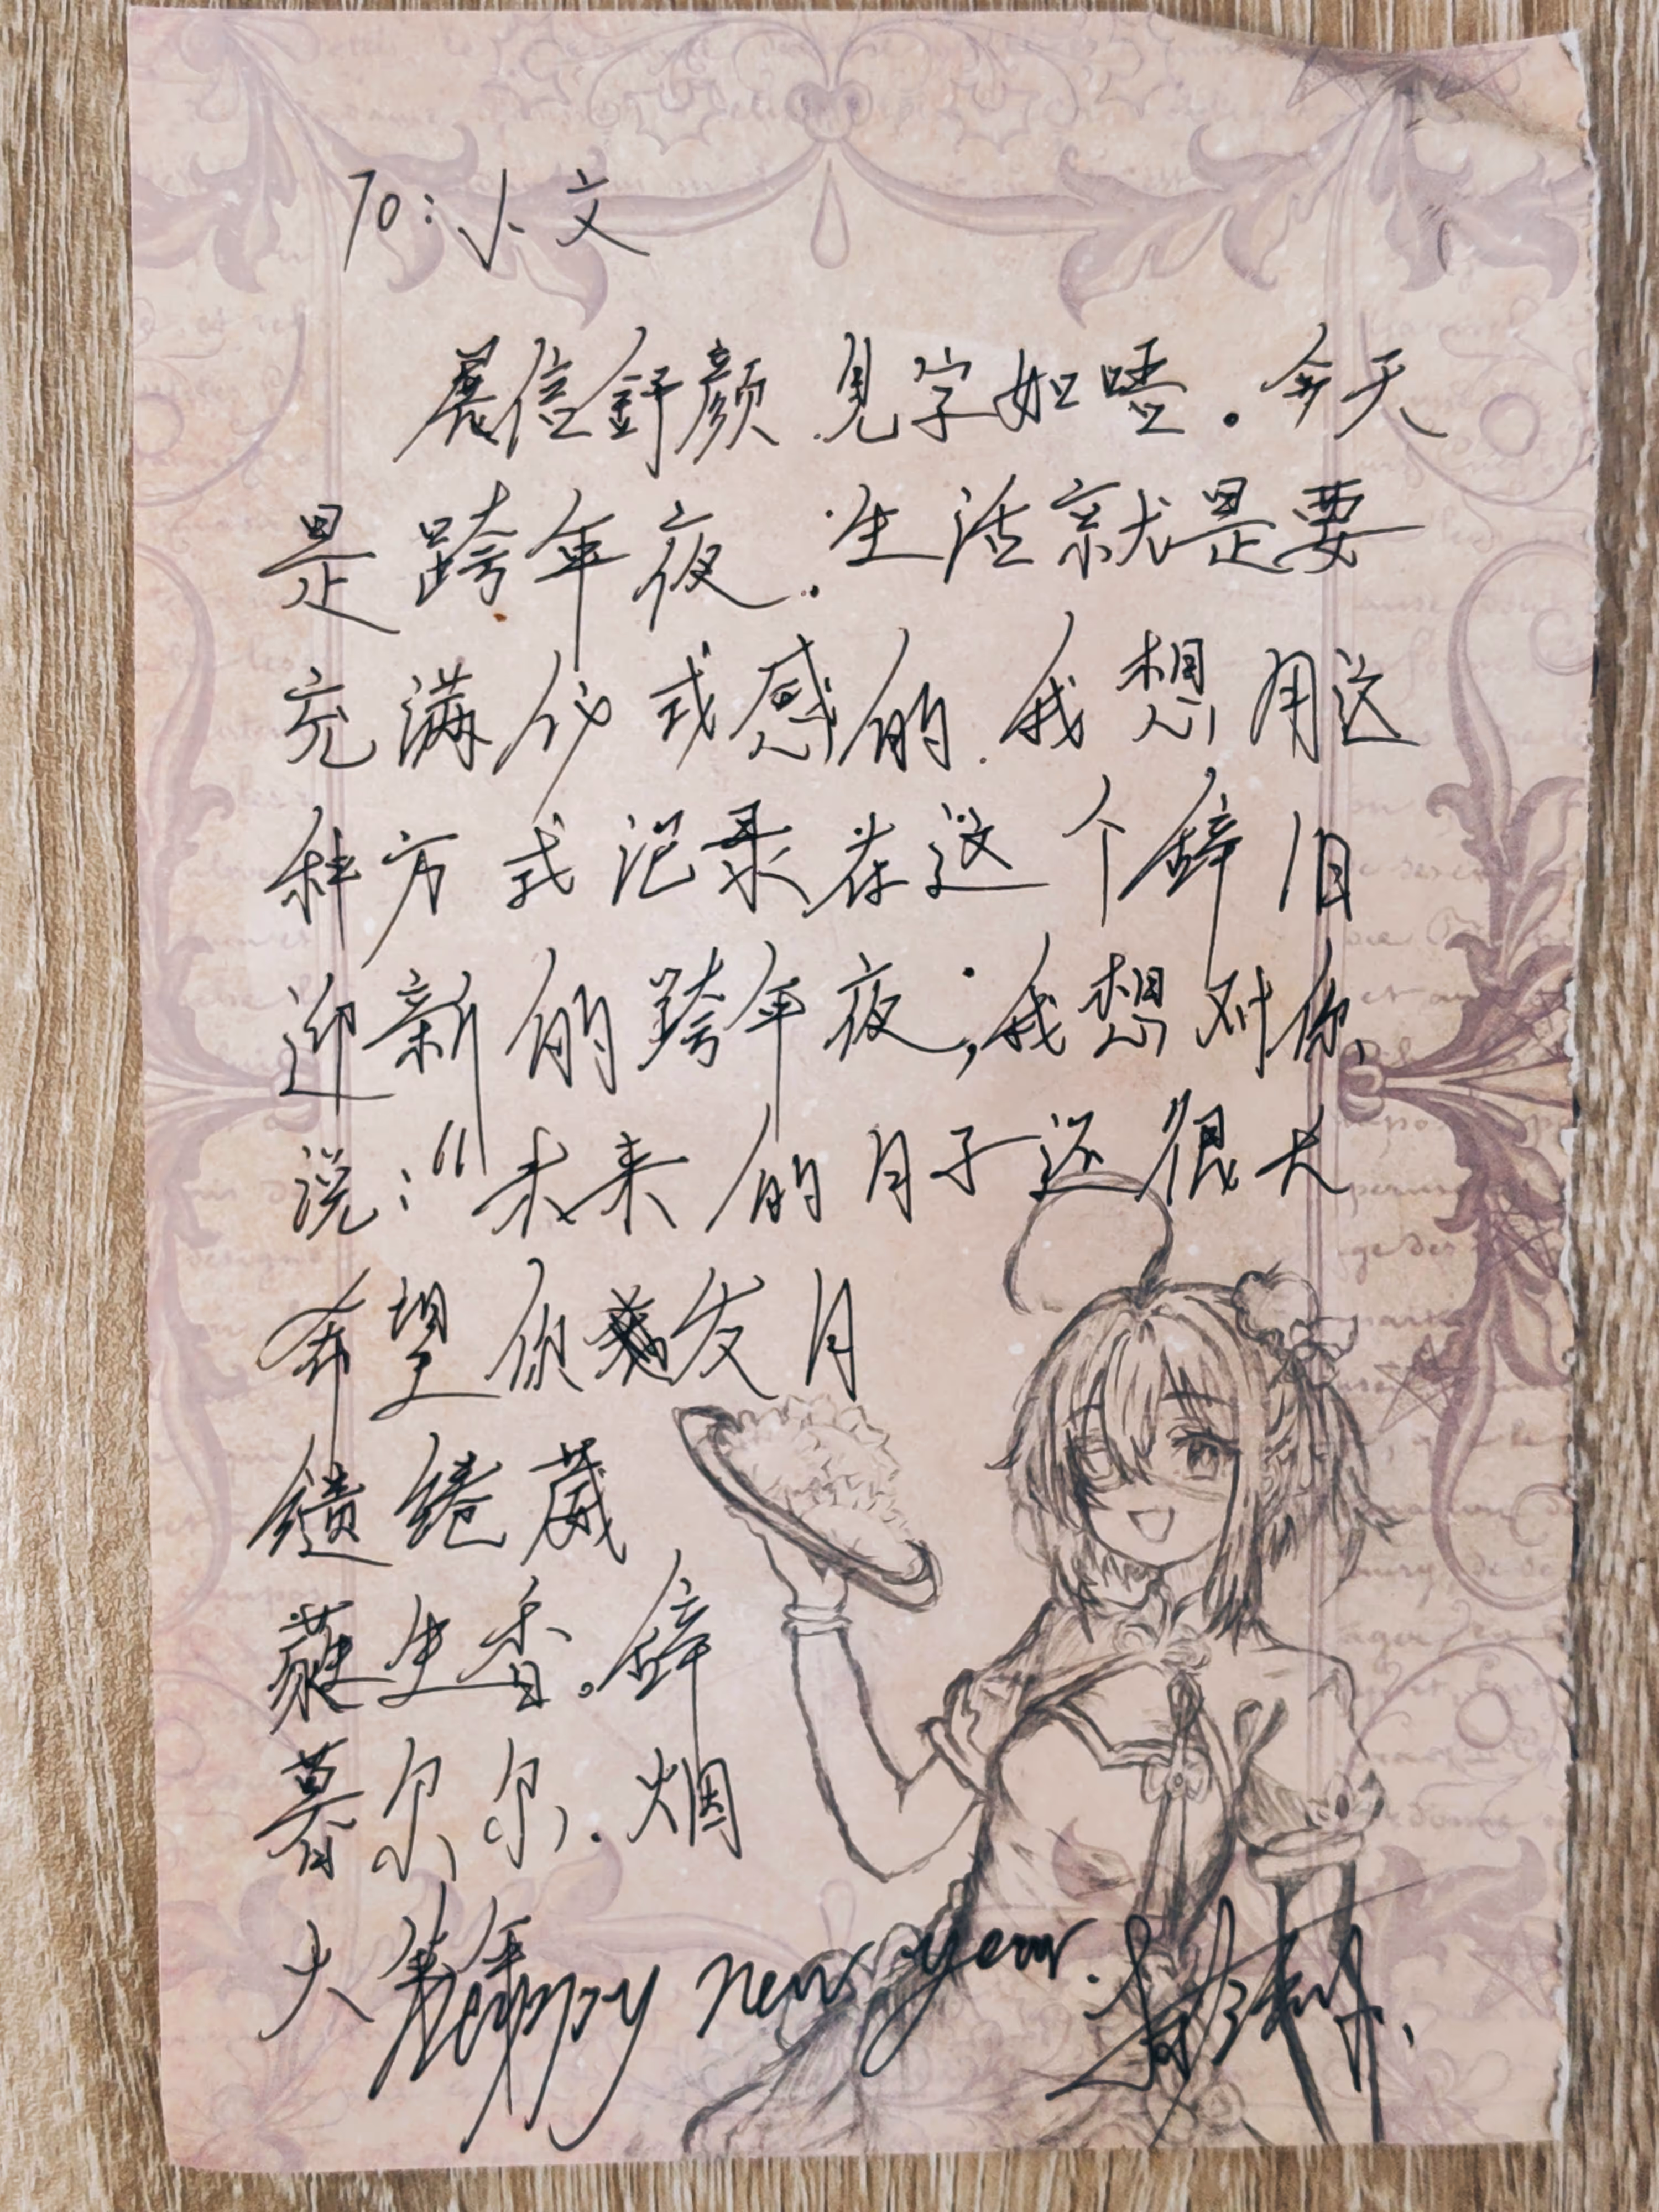 To:小文
展信舒颜 见字如晤.今天
是跨年夜.生活就是要
充满仪式感的.我想用这
种方式记录在这个辞旧
迎新的跨年夜,我想对你
说:“未来的日子还很长
希望你 发月
缱绻葳
蕤生香。辞
暮尔尔.烟
火年年
Happy new year.